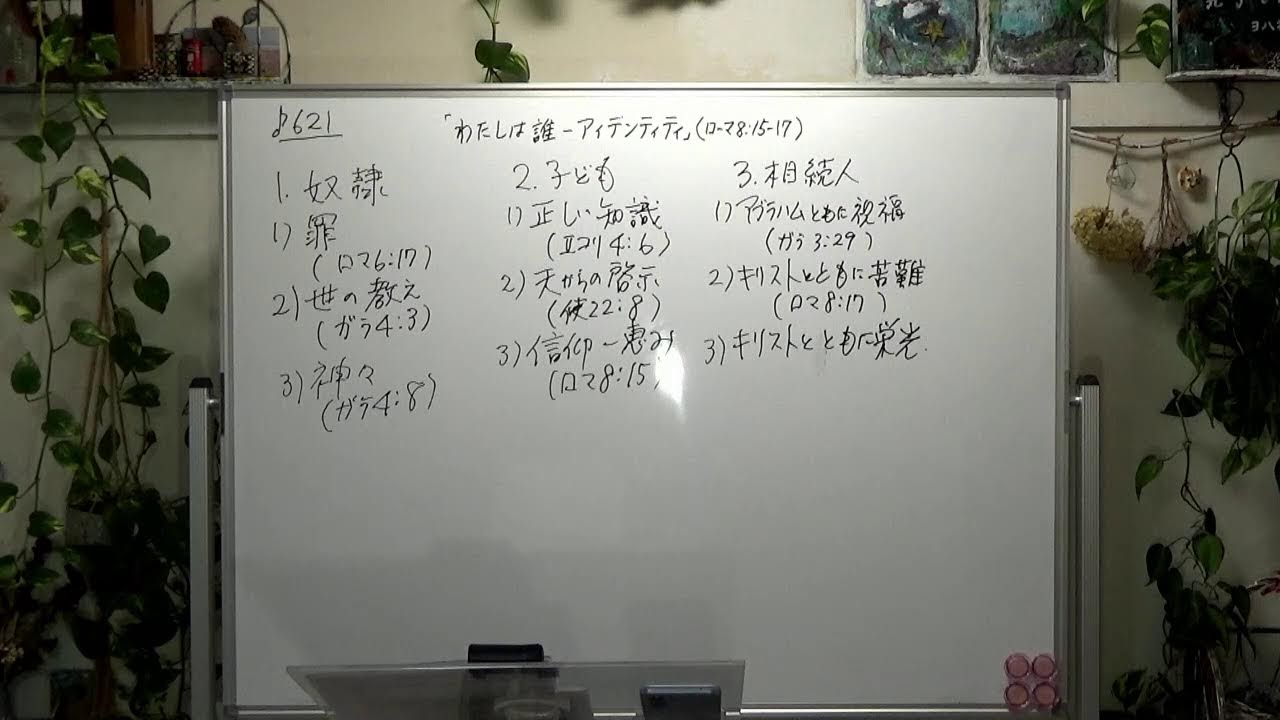 ♪621
「わたしは誰－アイデンティティ」(ローマ8:15-17)
1. 奴隷
1) 罪
(ロマ6:17)
2) 世の教え
(ガラ4:3)
3) 神々
(ガラ4:8)
2. 子ども
1) 正しい知識
(Ⅱコリ4:6)
2) 天からの啓示
(使22:8)
3) 信仰－恵み
(ロマ8:15)
3. 相続人
1) アブラハムともに祝福
(ガラ3:29)
2) キリストとともに苦難
(ロマ8:17)
3) キリストとともに栄光.